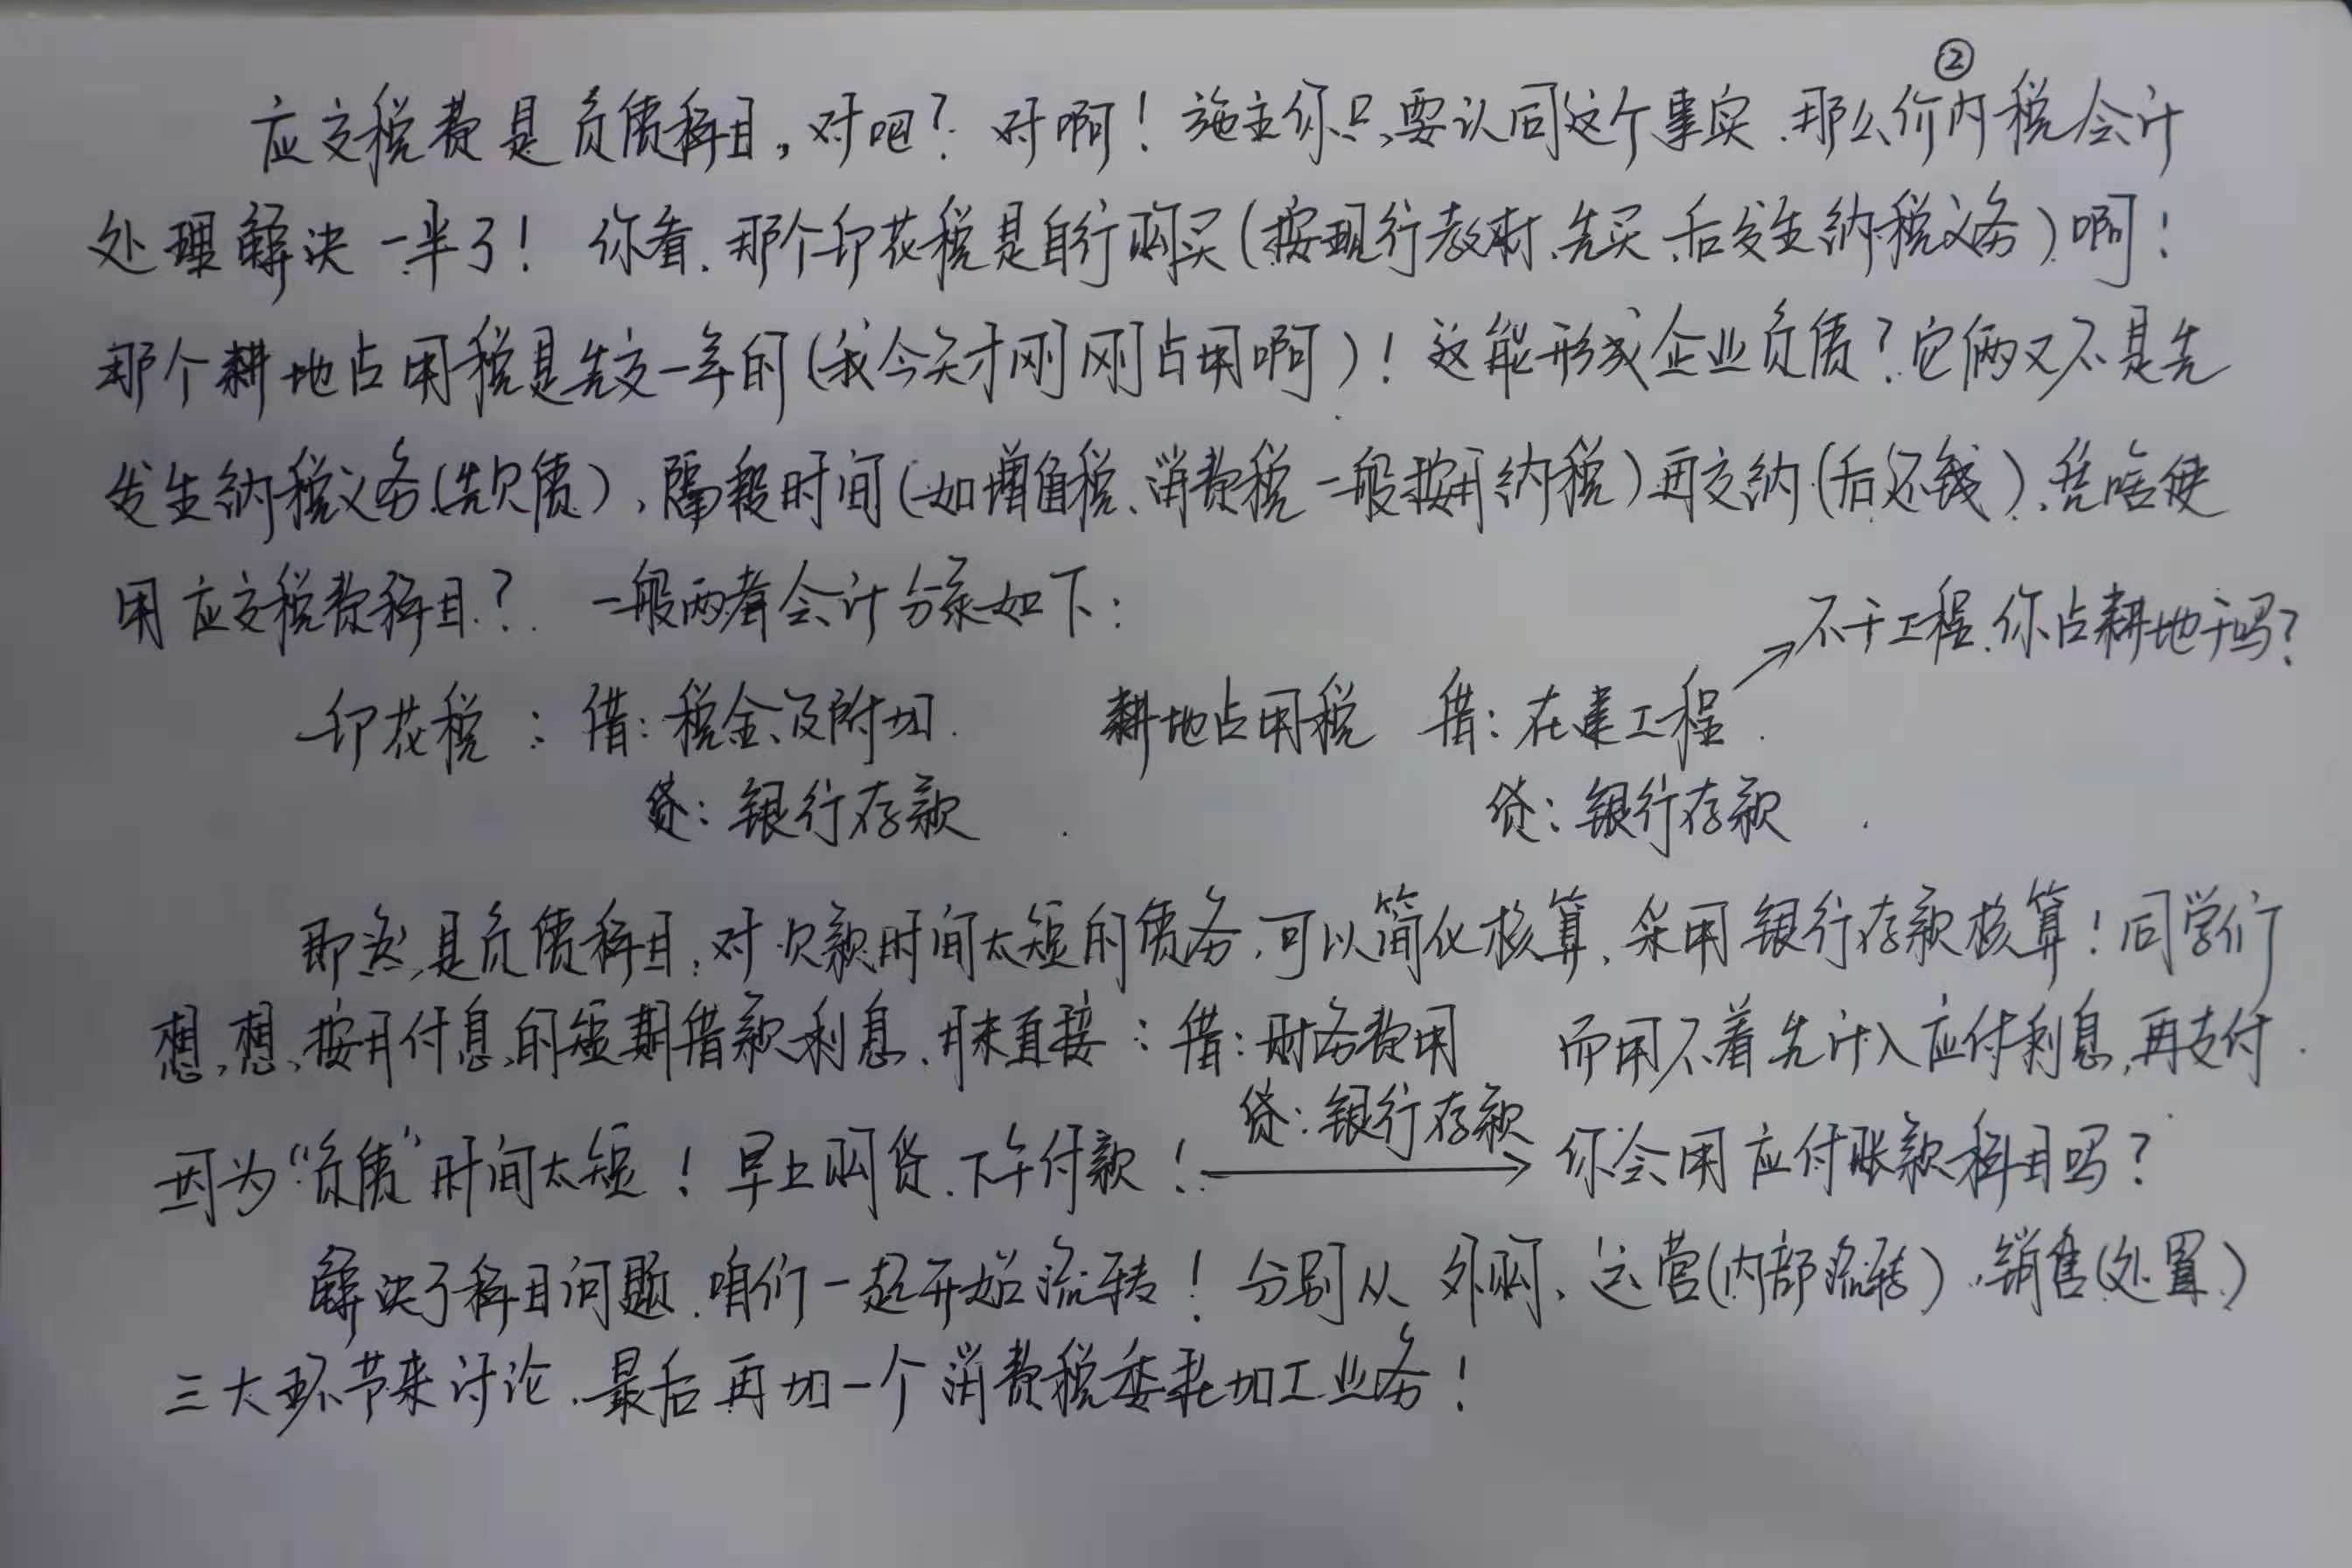 ②
应交税费是负债科目,对吧?对啊!施主你只要认同这个事实,那么价内税会计
处理解决一半了!你看,那个印花税是自行购买(按现行教材,先买,后发生纳税义务)啊!
那个耕地占用税是先交一年的(我今天才刚刚占用啊)!这能形成企业负债?它俩又不是先
发生纳税义务(先欠债),隔段时间(如增值税、消费税一般按月纳税)再交纳(后还钱),凭啥使
用应交税费科目?一般两者会计分录如下:
不干工程,你占耕地干吗?
印花税:借:税金及附加 耕地占用税 借:在建工程
贷:银行存款 贷:银行存款
即然是负债科目,对欠款时间太短的债务,可以简化核算,采用银行存款核算!同学们
想,想,按月付息的短期借款利息,月末直接:借:财务费用 而用不着先计入应付利息,再支付.
贷:银行存款
因为“负债”时间太短!早上购货,下午付款!→你会用应付账款科目吗?
解决了科目问题,咱们一起开始流转!分别从外购、运营(内部流转)、销售(处置)
三大环节来讨论,最后再加一个消费税委托加工业务!